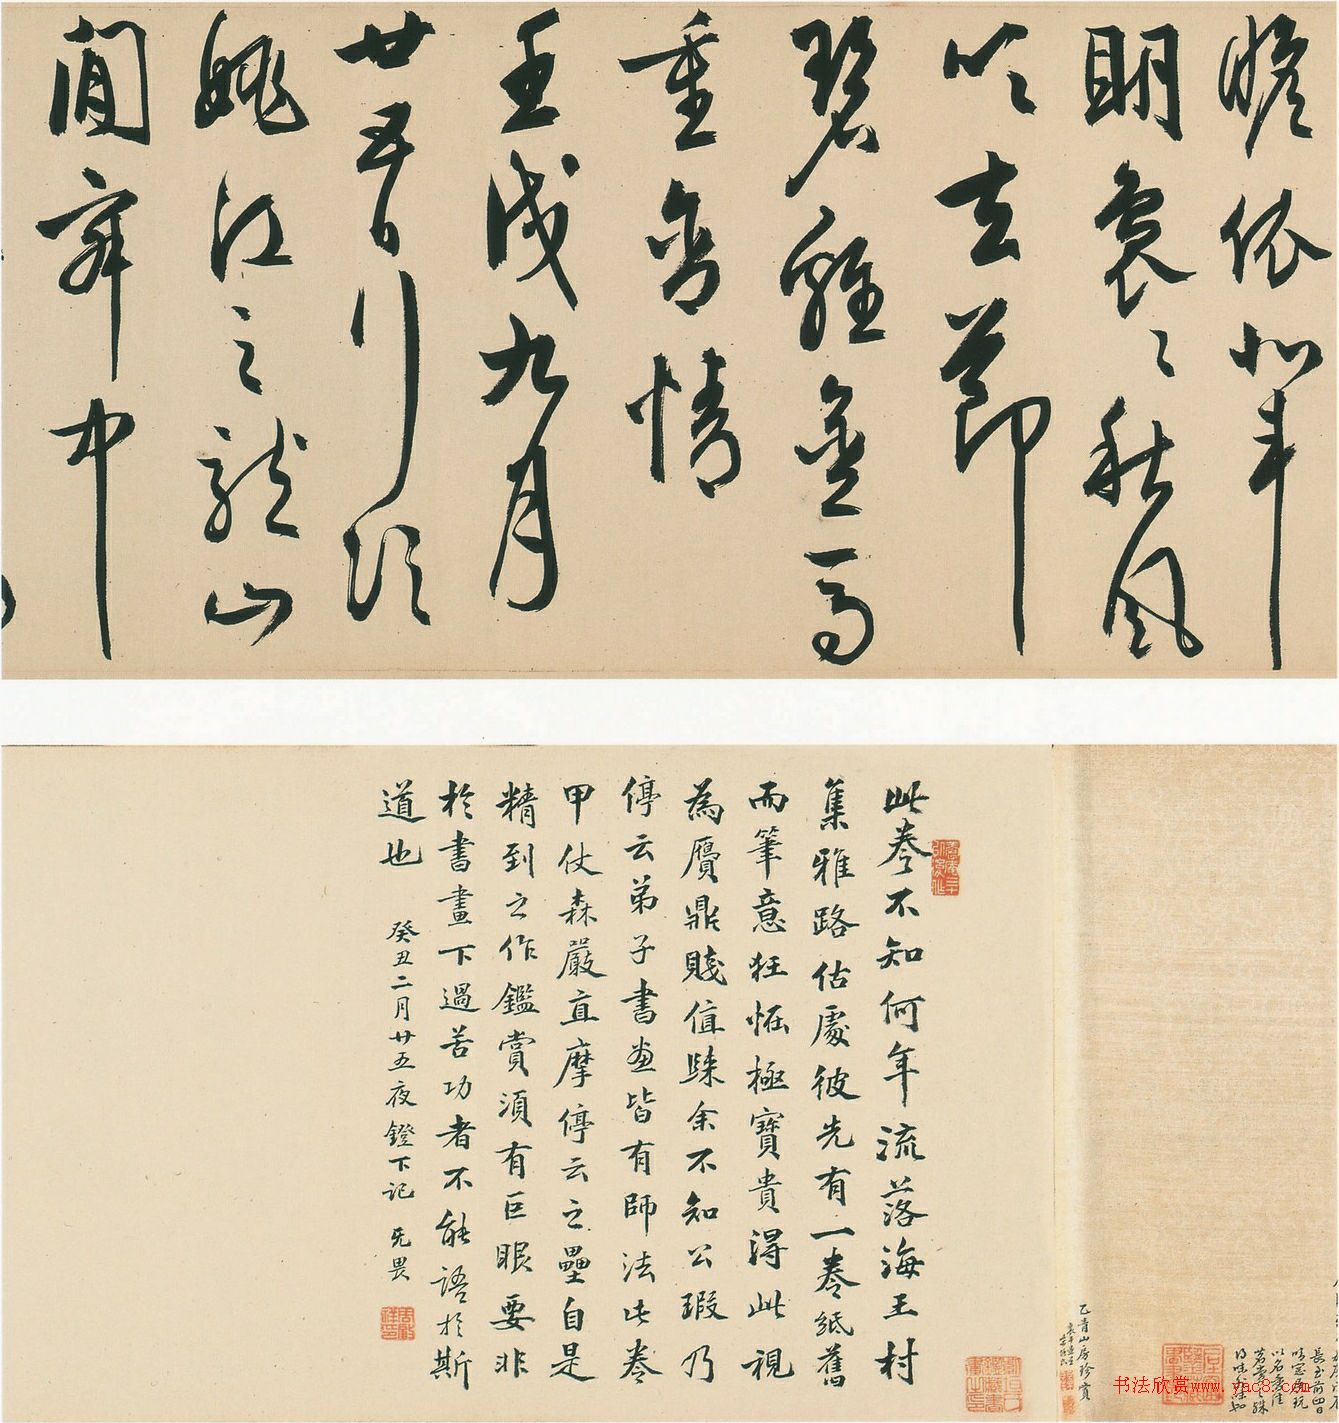 瞻依水年
明裊〻秋風
吹去節
碧雞金馬
重含情
壬戌九月
廿五日行次
姚江之龍山
閒齋中
此卷不知何年流落海王村
集雅路估處彼先有一卷紙舊
而筆意狂怪極寶貴得此視
為贋鼎賤值歸余不知公瑕乃
停云弟子書畫皆有師法此卷
甲仗森嚴直摩停云之壘自是
精到之作鑑賞須有巨眼要非
於書畫下過苦功者不能語於斯
道也
癸丑二月廿五夜鐙下記 旡畏
乙青山房珍賞
书法欣赏www.yac8.com